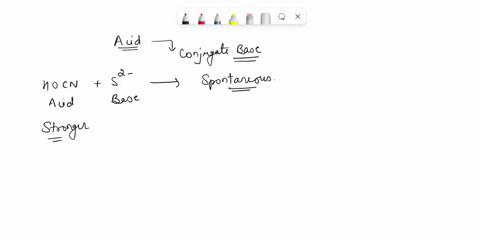 Acid
Conjugate Base
HOCN + S²⁻ → Spontaneous.
Acid Base
Stronger